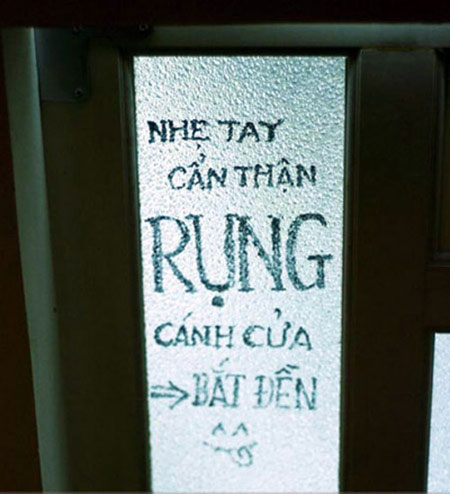 NHẸ TAY
CẨN THẬN
RỤNG
CÁNH CỬA
⇒ BẮT ĐỀN